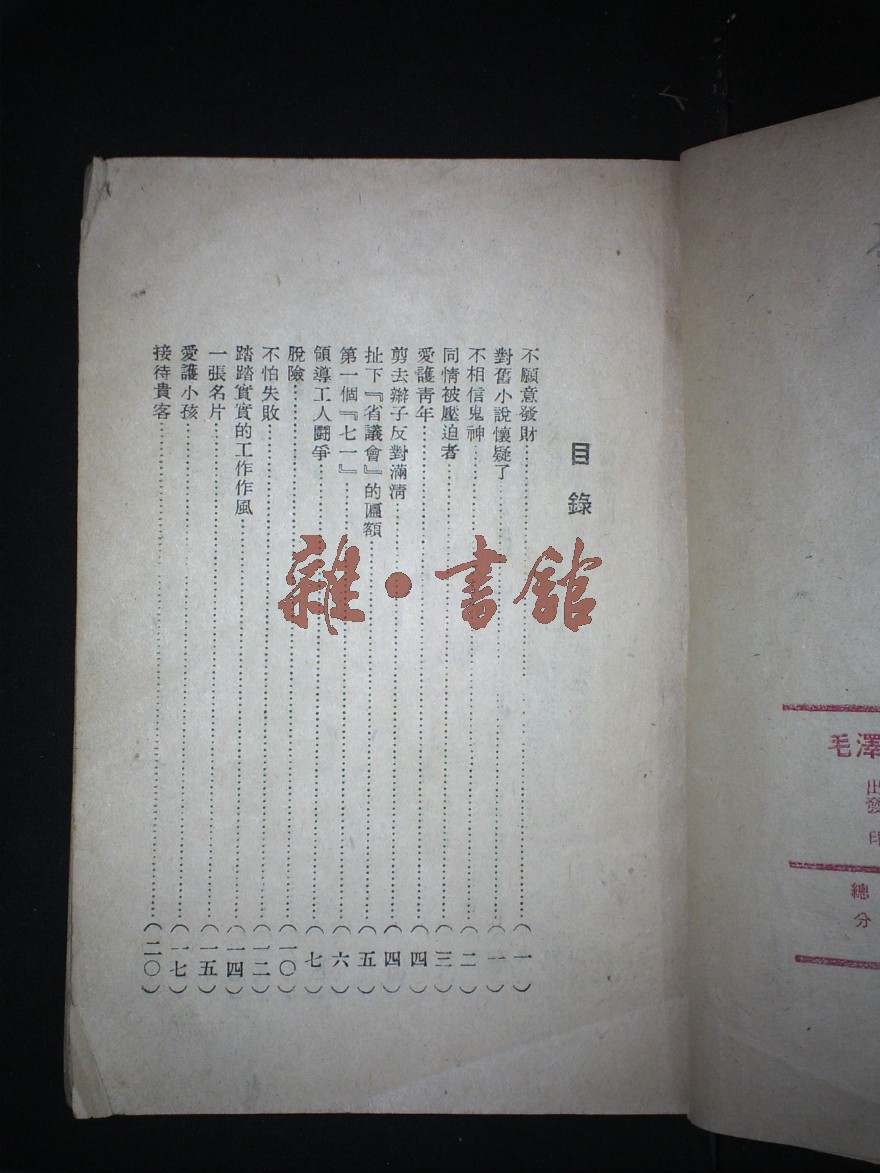 目錄
不願意發財……(一)
對舊小說懷疑了……(一)
不相信鬼神……(二)
同情被壓迫者……(三)
愛護青年……(四)
剪去辮子反對滿清……(四)
扯下『省議會』的匾額……(五)
第一個『七一』……(六)
領導工人鬪爭……(七)
脫險……(一〇)
不怕失敗……(一二)
踏踏實實的工作作風……(一四)
一張名片……(一五)
愛護小孩……(一七)
接待貴客……(二〇)
雜·書館
毛澤
出
發
印
總
分